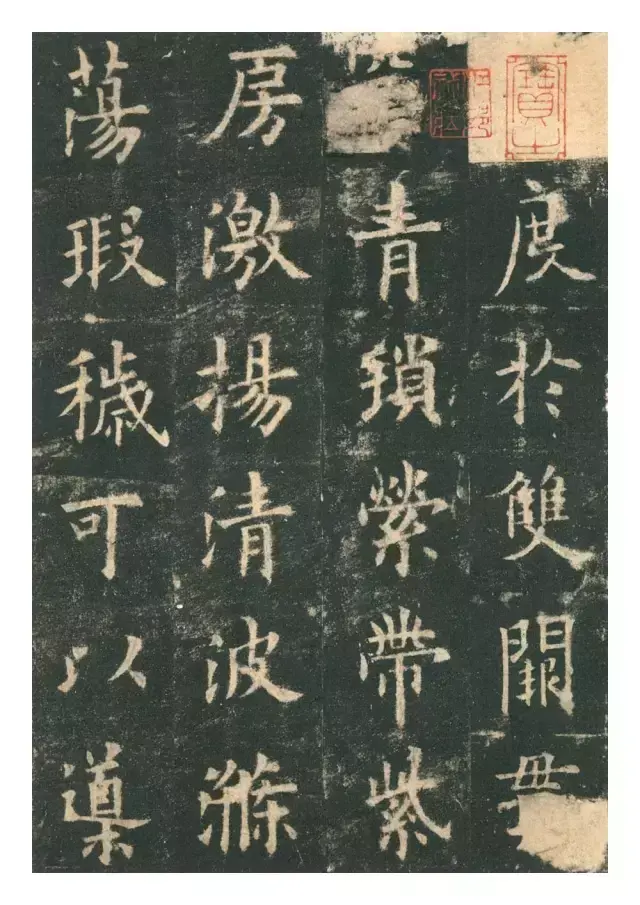 度於雙闕
青鎖縈帶紫
房激揚清波滌
蕩瑕穢可以導